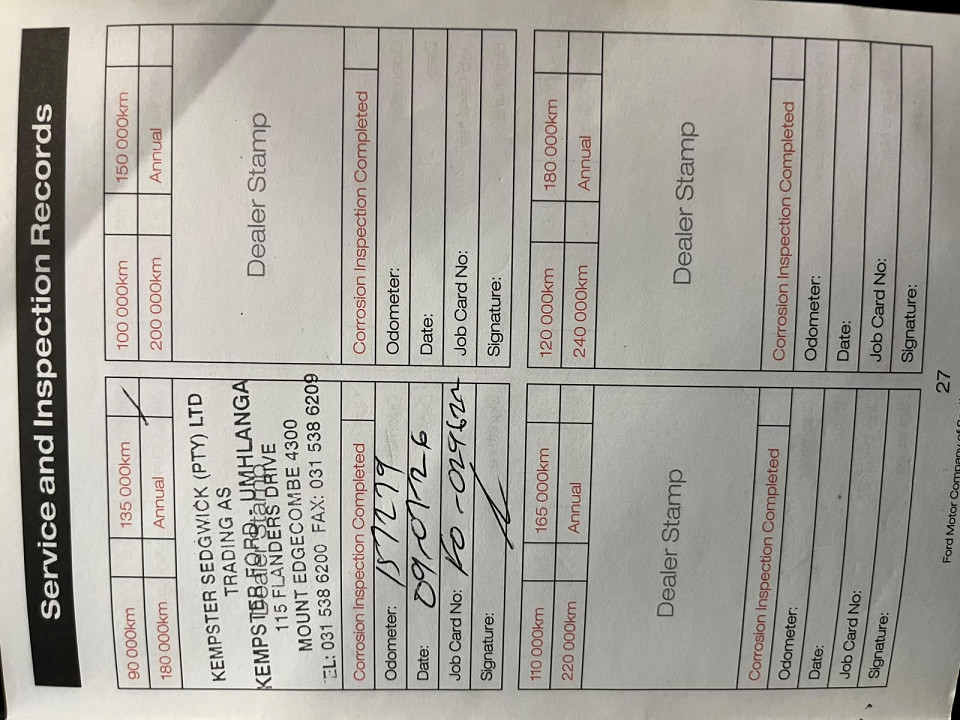 Service and Inspection Records
90 000km 135 000km
180 000km Annual
KEMPSTER SEDGWICK (PTY) LTD
TRADING AS
KEMPSTER FORD - UMHLANGA
Dealer Stamp
115 FLANDERS DRIVE
MOUNT EDGECOMBE 4300
TEL: 031 538 6200 FAX: 031 538 6209
Corrosion Inspection Completed
Odometer: 157279
Date: 09.07.26
Job Card No:
Signature:
100 000km 150 000km
200 000km Annual
Dealer Stamp
Corrosion Inspection Completed
Odometer:
Date:
Job Card No:
Signature:
110 000km 165 000km
220 000km Annual
Dealer Stamp
Corrosion Inspection Completed
Odometer:
Date:
Job Card No:
Signature:
120 000km 180 000km
240 000km Annual
Dealer Stamp
Corrosion Inspection Completed
Odometer:
Date:
Job Card No:
Signature:
27
Ford Motor Company of